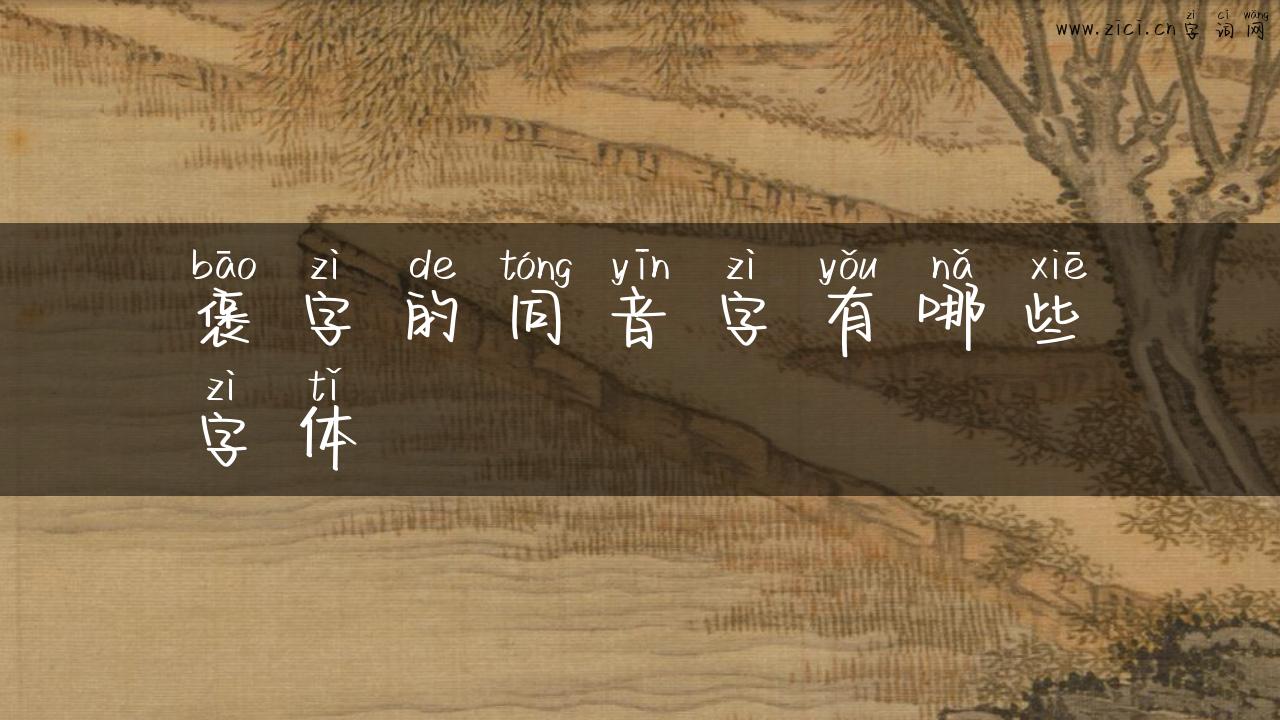 zì cí wǎng
www.zici.cn字词网
bāo zì de tóng yīn zì yǒu nǎ xiē
褒字的同音字有哪些
zì tǐ
字体